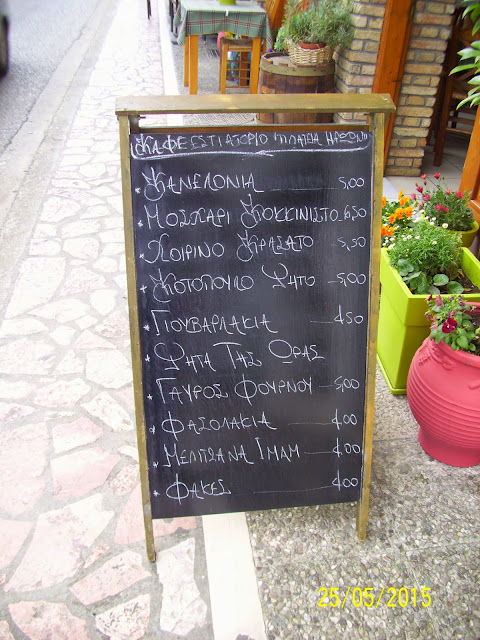 ΚΑΦΕΕΣΤΙΑΤΟΡΙΟ "ΠΛΑΤΕΙΑ
*ΚΑΝΕΛΟΝΙΑ 5,00
*ΜΟΣΧΑΡΙ ΚΟΚΚΙΝΙΣΤΟ 6,50
*ΧΟΙΡΙΝΟ ΚΡΑΣΑΤΟ 5,50
*ΚΟΤΟΠΟΥΛΟ ΨΗΤΟ 5,00
*ΓΙΟΥΒΑΡΛΑΚΙΑ 4,50
*ΨΗΤΑ ΤΗΣ ΩΡΑΣ
*ΓΑΥΡΟΣ ΦΟΥΡΝΟΥ 5,00
*ΦΑΣΟΛΑΚΙΑ 4,00
*ΜΕΛΙΤΖΑΝΑ ΙΜΑΜ 4,00
*ΦΑΚΕΣ 4,00
25/05/2015